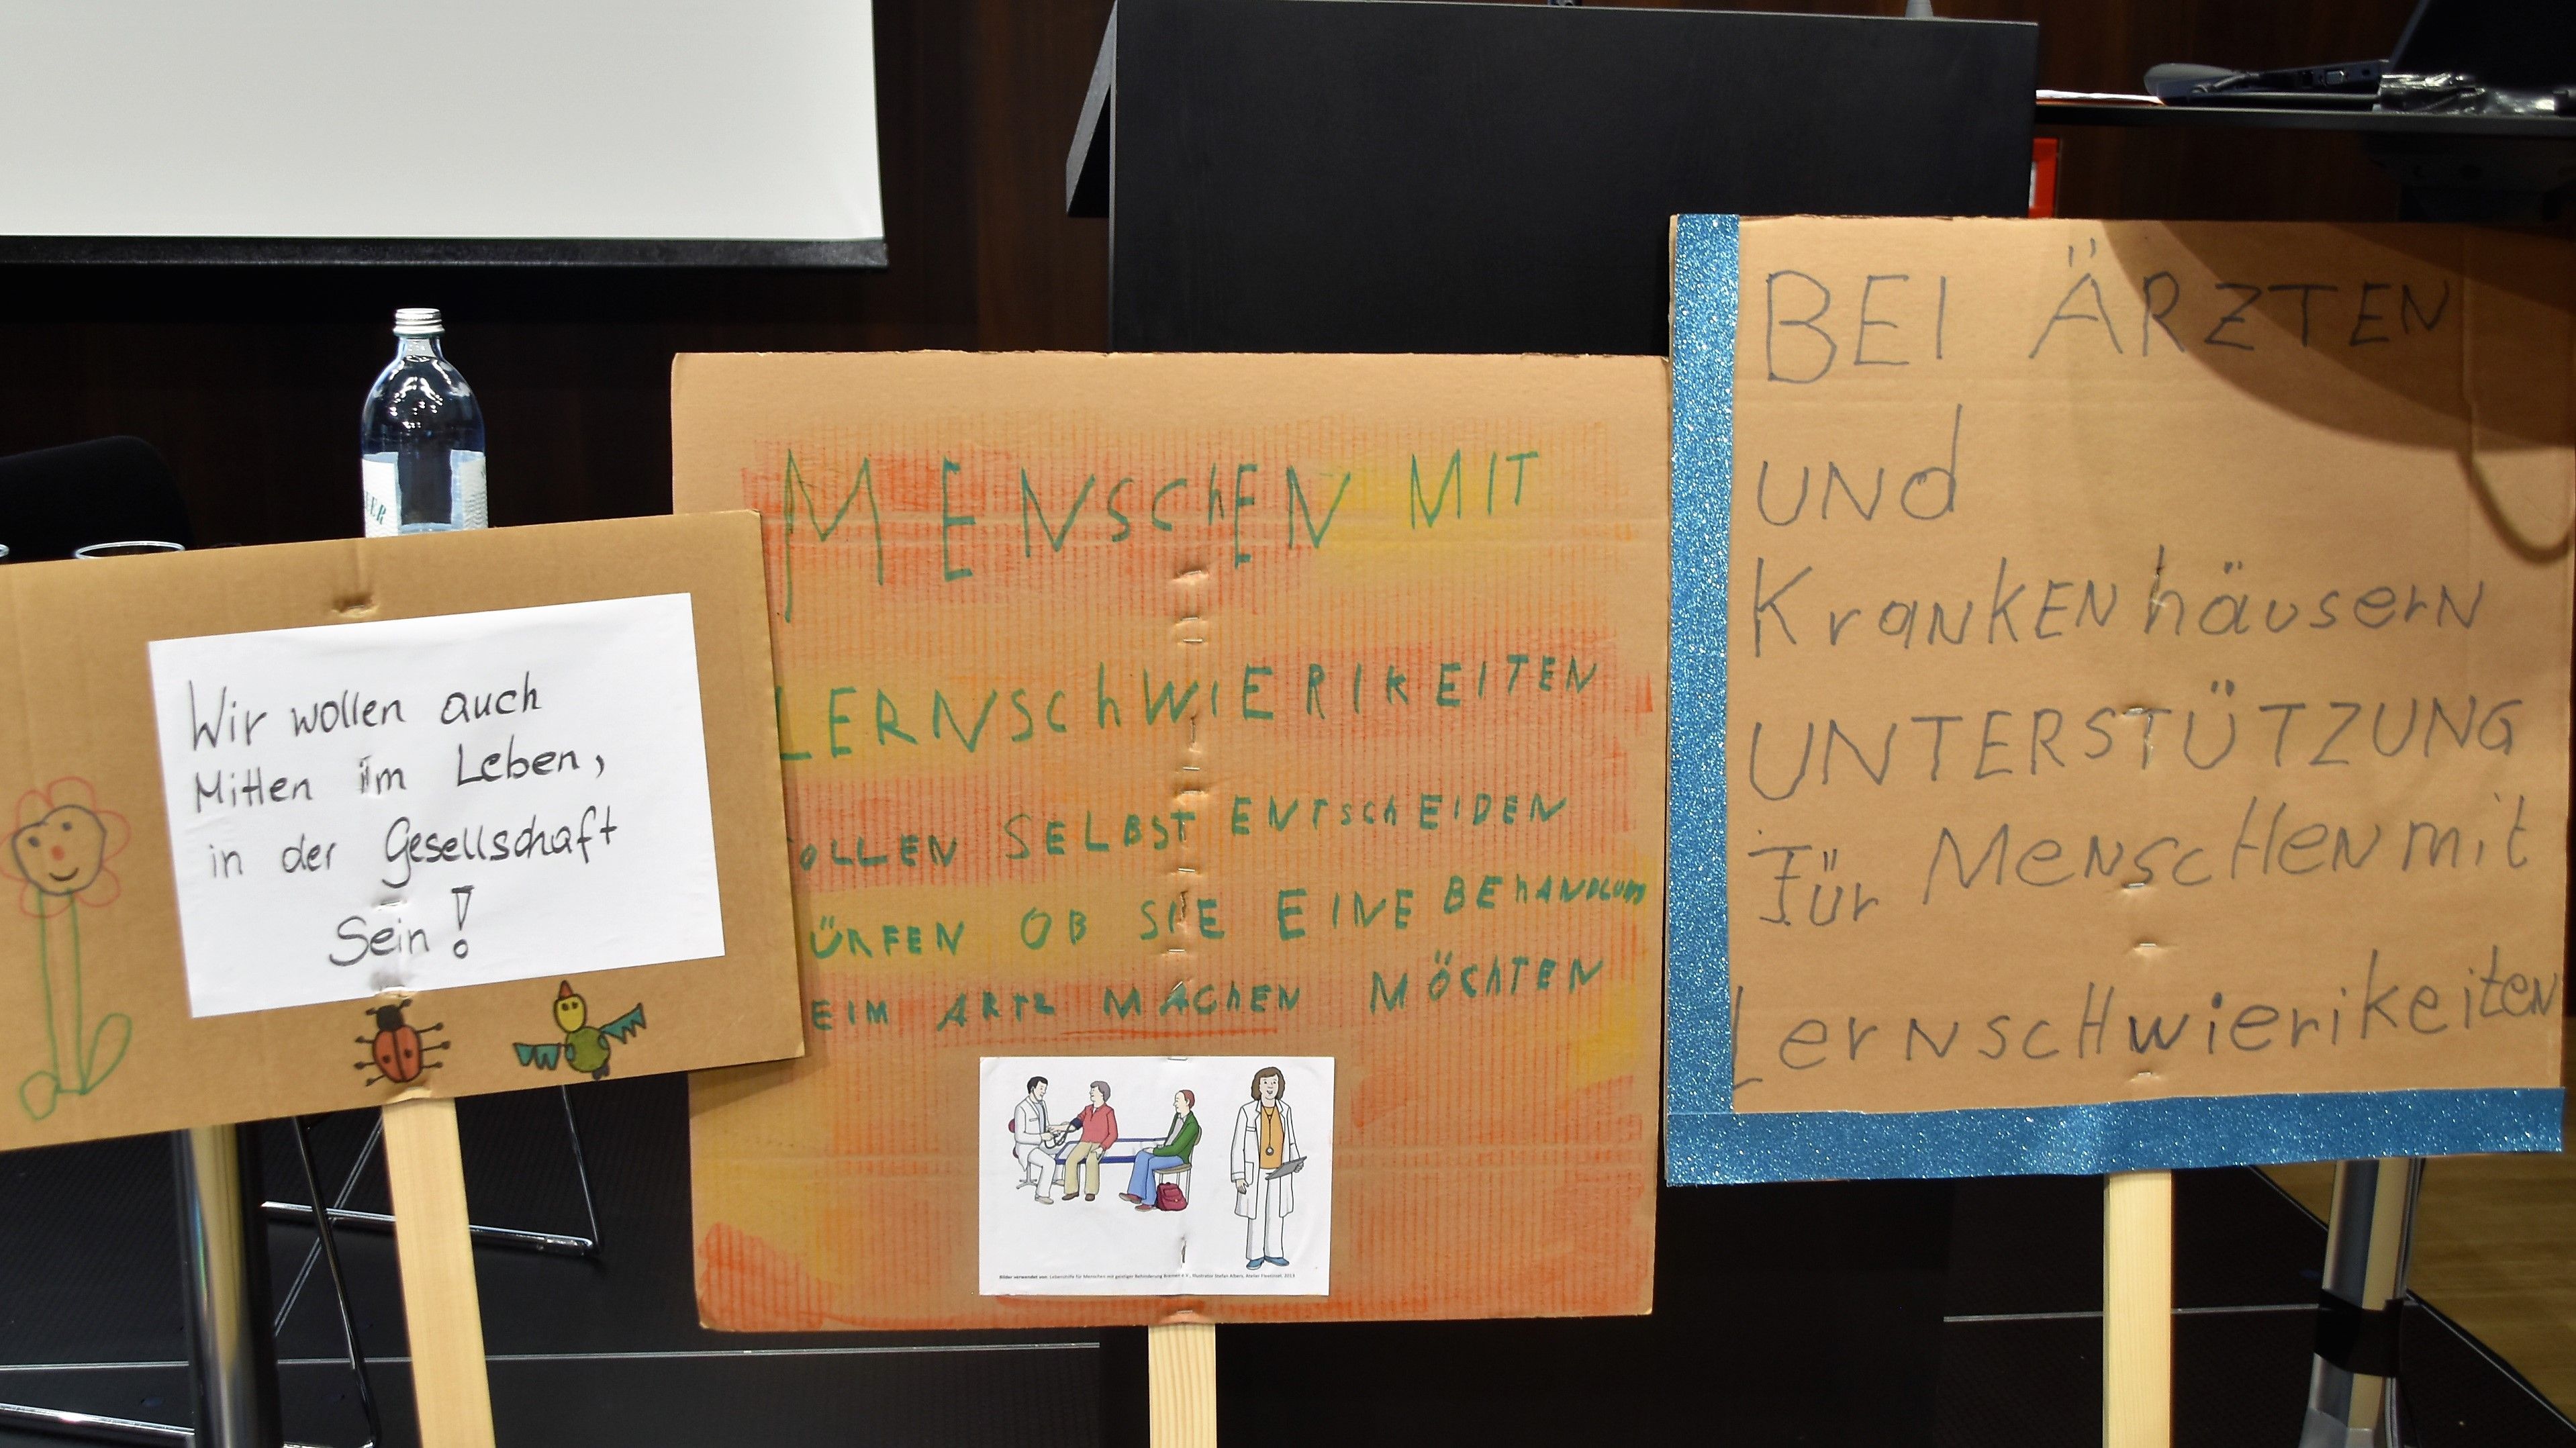 Wir wollen auch
Mitten im Leben,
in der Gesellschaft
Sein!
MENSChEN MIT
LERNSChWIERIKEITEN
OLLEN SELBST ENTSChEIDEN
ÜRFEN OB SIE EINE BEhANDLUNG
EIM ARTZ MAChEN MÖChTEN
Bilder verwendet von: Lebenshilfe für Menschen mit geistiger Behinderung Bremen e.V., Illustrator Stefan Albers, Atelier Fleetinsel, 2013
BEI ÄRZTEN
UNd
KranKENhäusern
UNTERSTÜTZUNG
Für MenscHen mit
LernscHwierikeiten